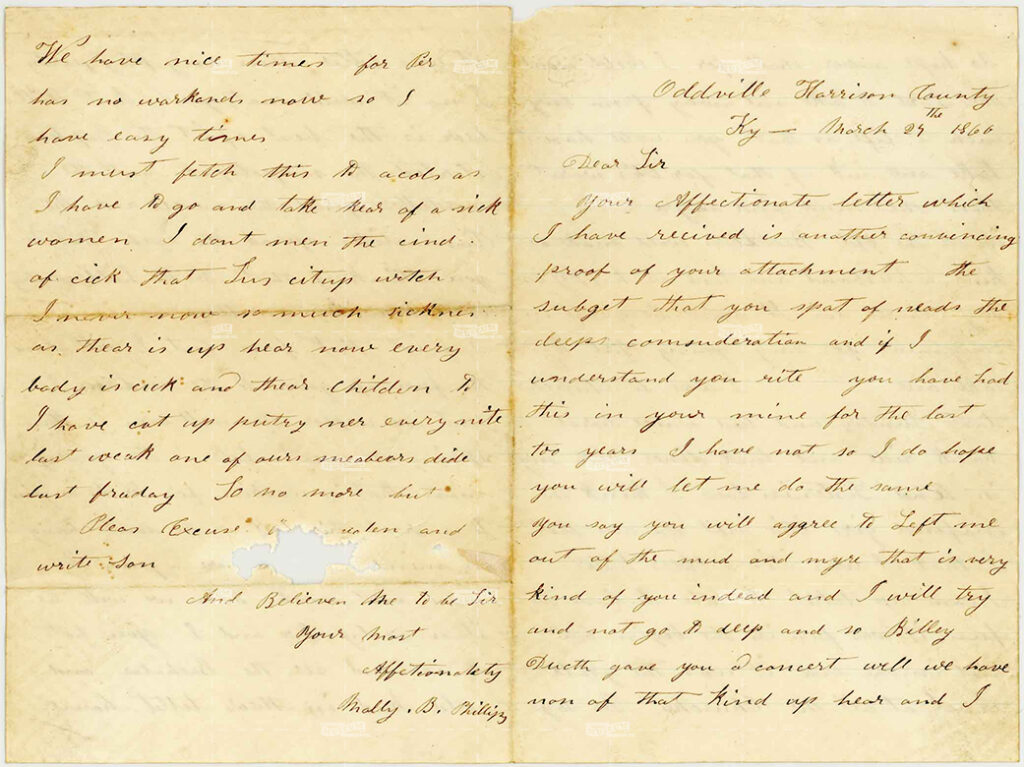 Oddville Harrison County
Ky — March 27 the 1866
Dear Sir
Your Affectionate letter which
I have recived is another convincing
proof of your attachment the
subget that you spat of neads the
deeps comsideration and if I
understand you rite you have had
this in your mine for the last
too years I have not so I do hope
you will let me do the same
You say you will aggree to Left me
out of the mud and myre that is very
kind of you indead and I will try
and not go to deep and so Billey
gave you a concert well we have
non of that kind up hear and I
We have nice times for Per
has no workands now so I
have easy times
I must fetch this to a cols as
I have to go and take kear of a sick
women I dont men the cind
of cick that Sus citup witch
I never now so much sicknes
as thear is up hear now every
body is cick and thear children to
I have cat up putry ner every nite
last weak one of ours meabears dide
last fraday So no more but
Pleas Excuse and
write son
And Believen Me to be Sir
Your Most
Affectionately
Molly . B. Phillips